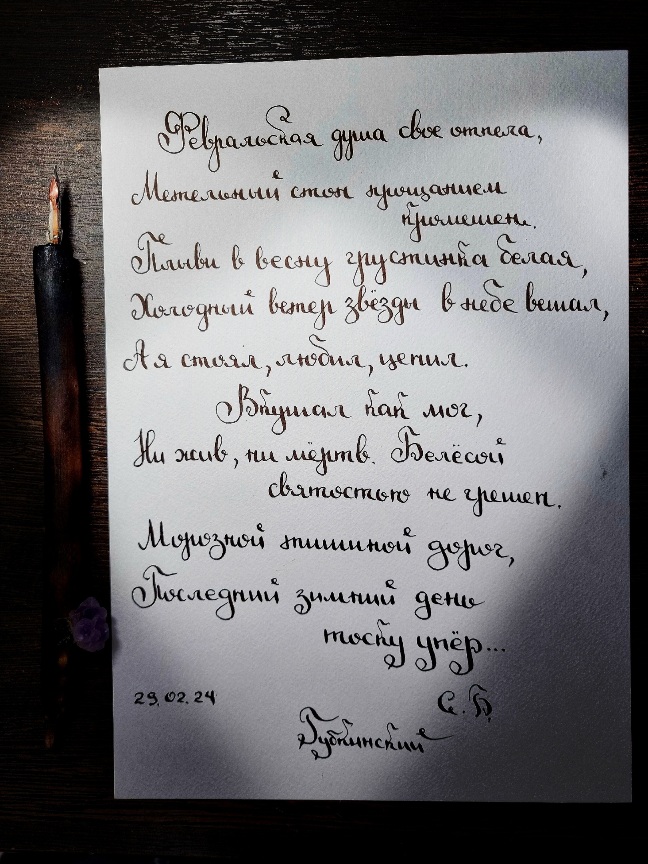 Февральская душа свое отпела,
Метельный стон прощанием
кромешен.
Плыви в весну грустинка белая,
Холодный ветер звёзды в небе вешал,
А я стоял, любил, ценил.
Вкушал как мог,
Ни жив, ни мёртв. Белёсой
святостью не грешен.
Морозной тишиной дорог,
Последний зимний день
тоску упёр...
29.02.24
С.Б.
Губкинский